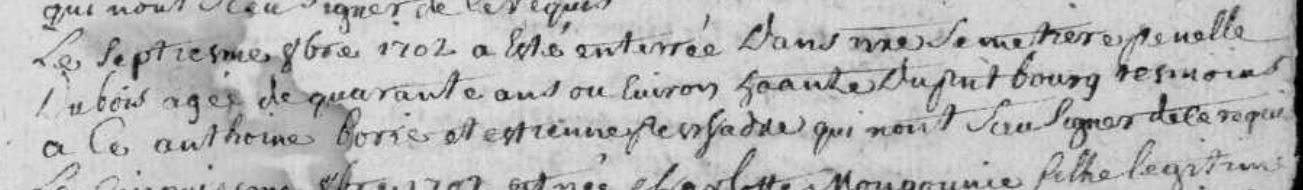 qui nont sceu signer de ce requis
Le septiesme 8bre 1702 a esté enterrée dans nre semetiere penelle
Dubois agée de quarante ans ou environ haante du pnt bourg tesmoins
a ce anthoine borie et estienne qui nont sceu signer de ce requis
Le cinquiesme 8bre 1702 est née charlotte Mougounie filhe legitime